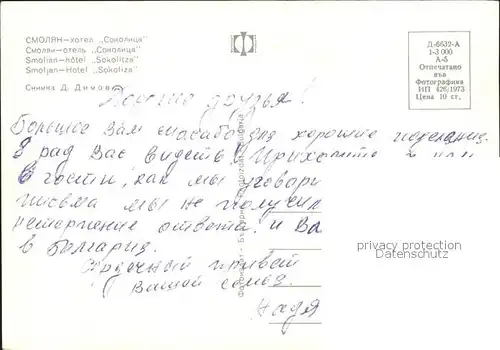 СМОЛЯН—хотел „Соколица"
Смолян—отель „Соколица"
Smolian—hôtel „Sokolitza"
Smoljan—Hotel „Sokoliza"
Снимка Д. Димов
Д-6632-А
1-3 000
А-5
Отпечатано
във
Фотографика
ИП (26)1973
Цена 10 ст.
Дорогие друзья!
Большое Вам спасибо за хорошие
Я рад Вас видеть Приходите к нам
в гости, как мы уговори
письма мы не получил
нетерпение ответа. и Ва
в Болгария.
Сердечный привет
Вашей семье.
Надя
privacy protection
Datenschutz